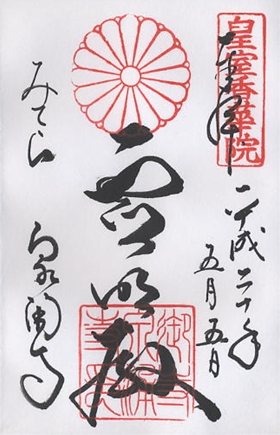 皇室香華院
奉拝
平成二十年
五月五日
霊明殿
みてら 泉涌寺